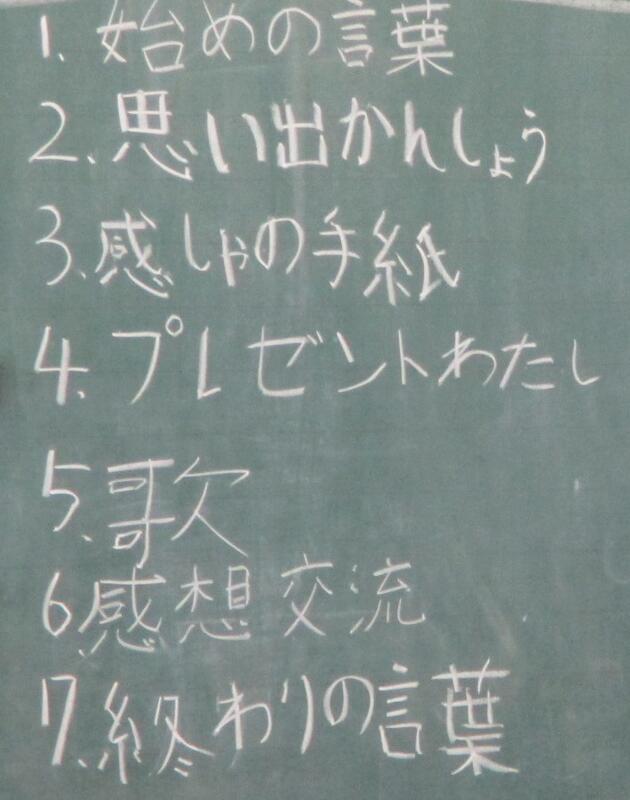 1. 始めの言葉
2. 思い出かんしょう
3. 感しゃの手紙
4. プレゼントわたし
5. 歌
6 感想交流
7. 終わりの言葉